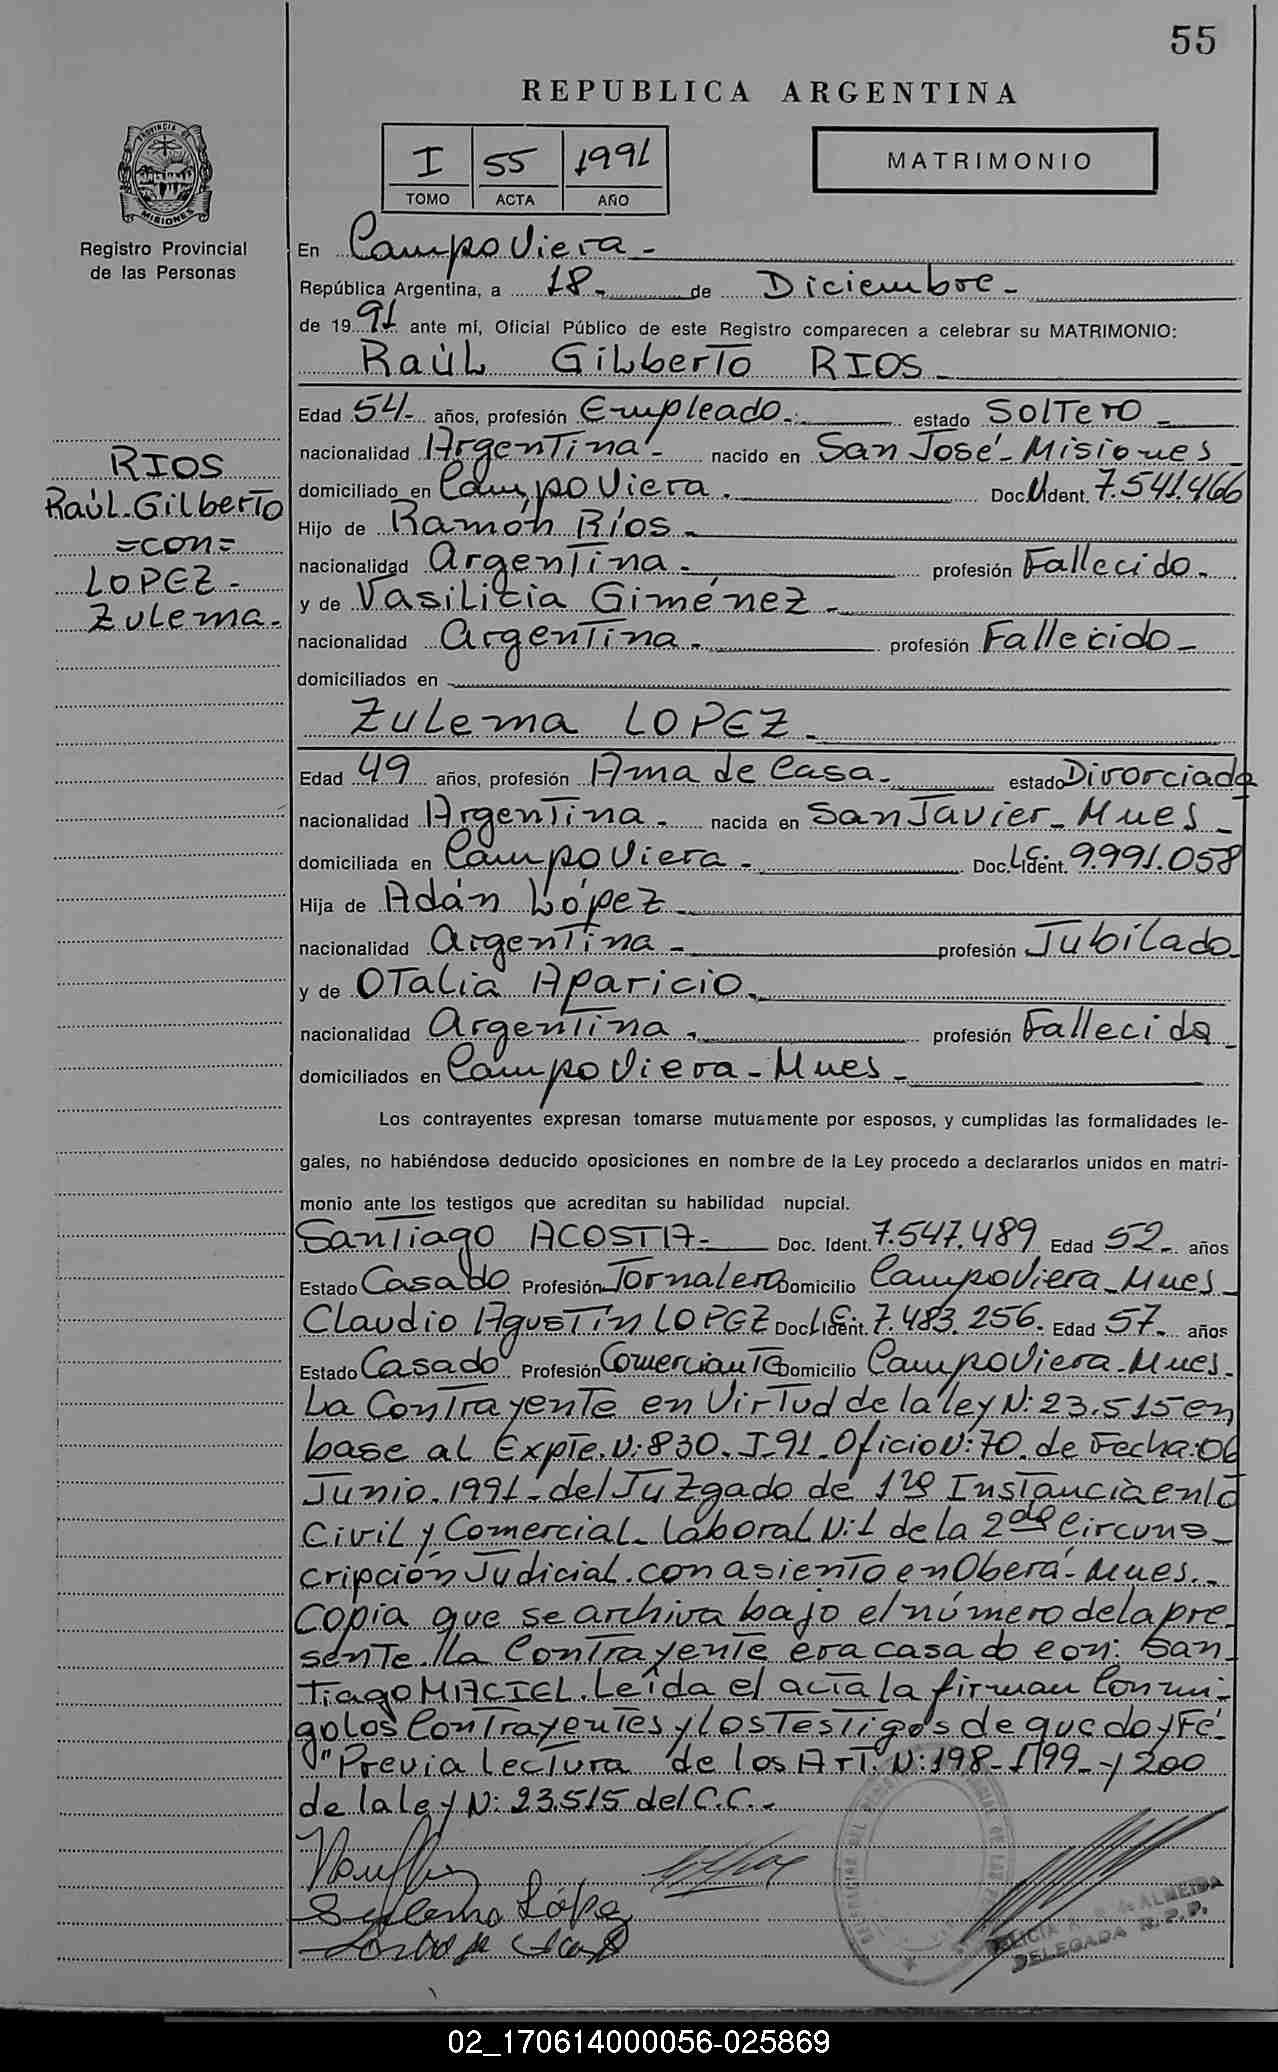 55
REPUBLICA ARGENTINA
I 55 1991
TOMO ACTA AÑO
MATRIMONIO
PROVINCIA DE
MISIONES
Registro Provincial
de las Personas
RIOS
Raúl Gilberto
=con=
LOPEZ-
Zulema.
En Campo Viera-
República Argentina, a 18- de Diciembre-
de 1991- ante mí, Oficial Público de este Registro comparecen a celebrar su MATRIMONIO:
Raúl Gilberto RIOS-
Edad 54- años, profesión Empleado. estado Soltero-
nacionalidad Argentina- nacido en San José-Misiones-
domiciliado en Campo Viera. Doc. Ident. 7.541.466
Hijo de Ramón Ríos-
nacionalidad Argentina- profesión Fallecido-
y de Vasilicia Giménez-
nacionalidad Argentina- profesión Fallecido-
domiciliados en
Zulema LOPEZ-
Edad 49 años, profesión Ama de Casa- estado Divorciada
nacionalidad Argentina- nacida en San Javier-Mnes-
domiciliada en Campo Viera- Doc. L.C. Ident. 9.991.058
Hija de Adán López-
nacionalidad Argentina- profesión Jubilado-
y de Otalia Aparicio-
nacionalidad Argentina- profesión Fallecida-
domiciliados en Campo Viera-Mnes-
Los contrayentes expresan tomarse mutuamente por esposos, y cumplidas las formalidades le-
gales, no habiéndose deducido oposiciones en nombre de la Ley procedo a declararlos unidos en matri-
monio ante los testigos que acreditan su habilidad nupcial.
Santiago ACOSTA- Doc. Ident. 7.547.489 Edad 52- años
Estado Casado Profesión Jornalero Domicilio Campo Viera-Mnes-
Claudio Agustín LOPEZ Doc. Ident. 7.483.256. Edad 57- años
Estado Casado Profesión Comerciante Domicilio Campo Viera-Mnes-
La Contrayente en Virtud de la ley N: 23.515 en
base al Expte. N: 830-I-91-Oficio N: 70 de Fecha: 06
Junio-1991-del Juzgado de 1ra Instancia en lo
Civil y Comercial-Laboral N:1 de la 2da Circuns-
cripción Judicial.con asiento en Oberá-Mnes.-
Copia que se archiva bajo el número de la pre-
sente. La Contrayente era casado con: San-
tiago MACIEL. Leída el acta la firman Conmi-
go los Contrayentes y los Testigos de que doy Fé-
"Previa lectura de los Art. N:198-199-y 200
de la ley N: 23.515 del C.C.-
Zulema López
ALMEIDA
DELEGADA R.P.P.
02_170614000056-025869